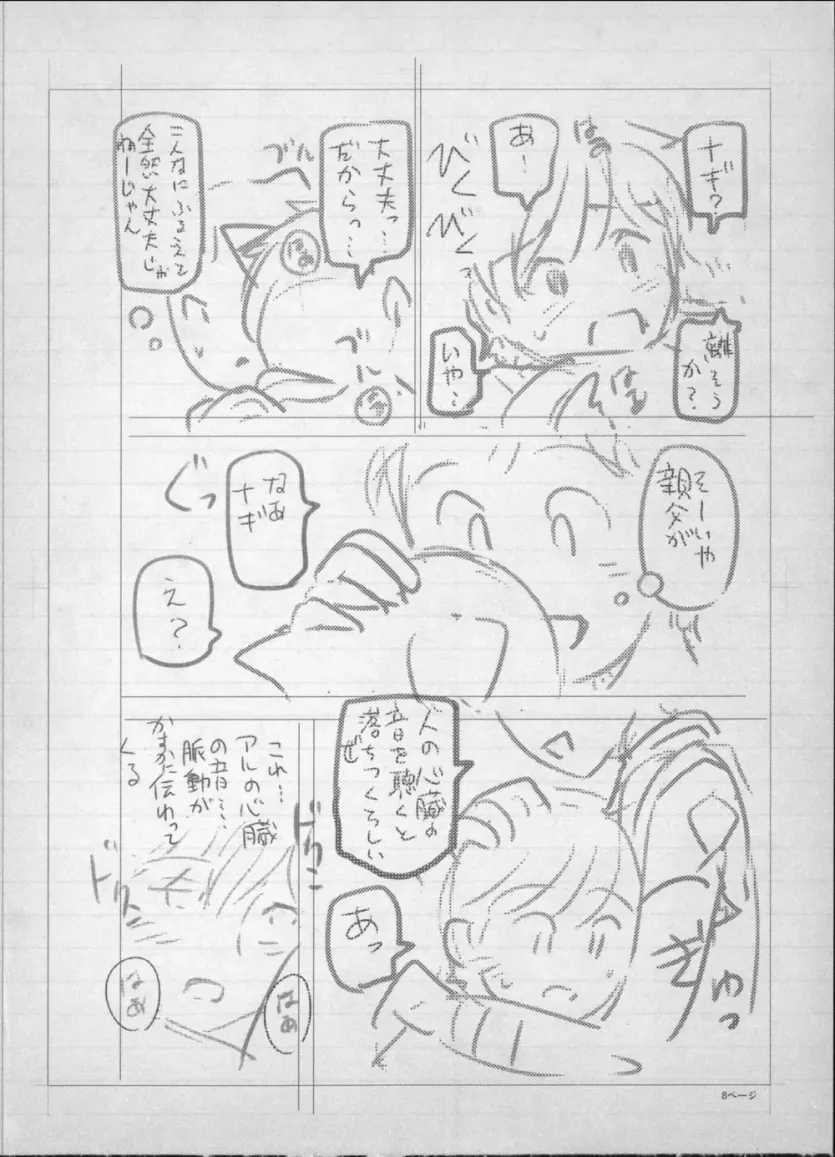 ナギ?
はぁ
あ…
びく
びく
離そう
か?
いや…
はぁ
大丈夫っ…
だからっ…
ブル
はぁ
ブル
はぁ
こんなにふるえて
全然大丈夫じゃ
ねーじゃん
そーいや
親父が
なあ
ナギ
ぐっ
え?
人の心臓の
音を聴くと
落ちつくらしい
ぜ
ぎ
ゅっ
あっ
これ…
アルの心臓
の音…
脈動が
かすかに伝わって
くる
ドクン
ドクン
はぁ
はぁ
8ページ